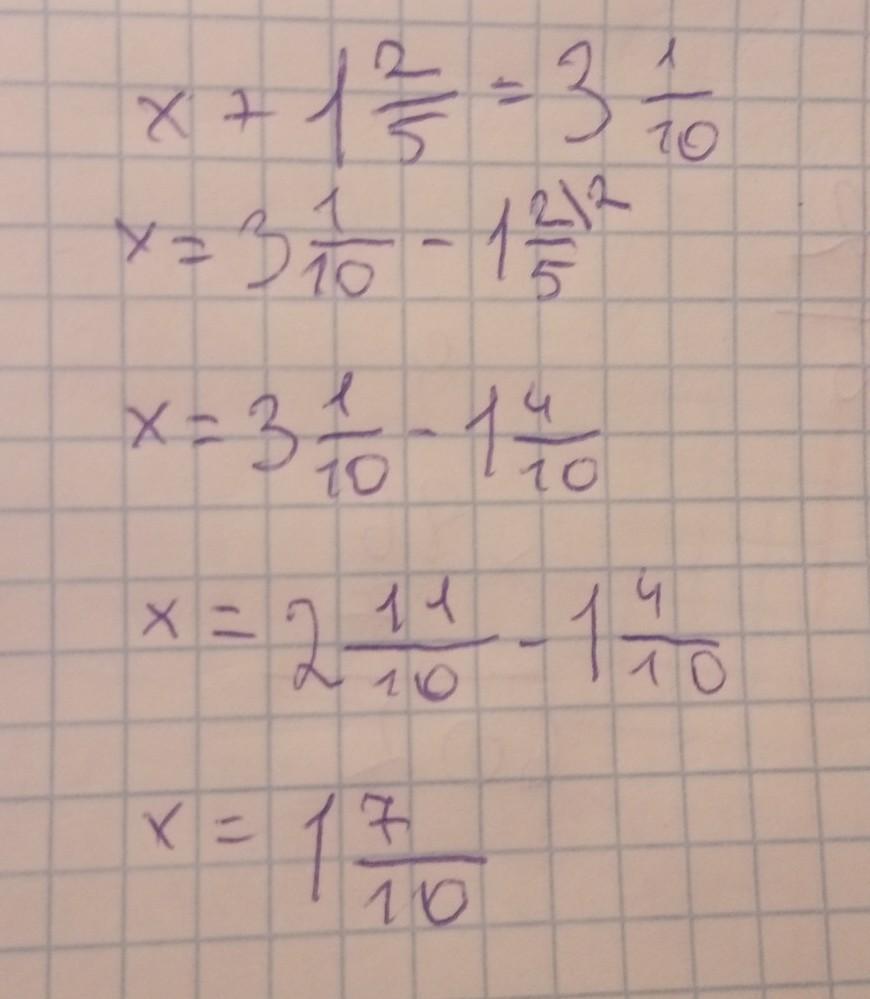 x + 1 2/5 = 3 1/10
x = 3 1/10 - 1 2\2/5
x = 3 1/10 - 1 4/10
x = 2 11/10 - 1 4/10
x = 1 7/10